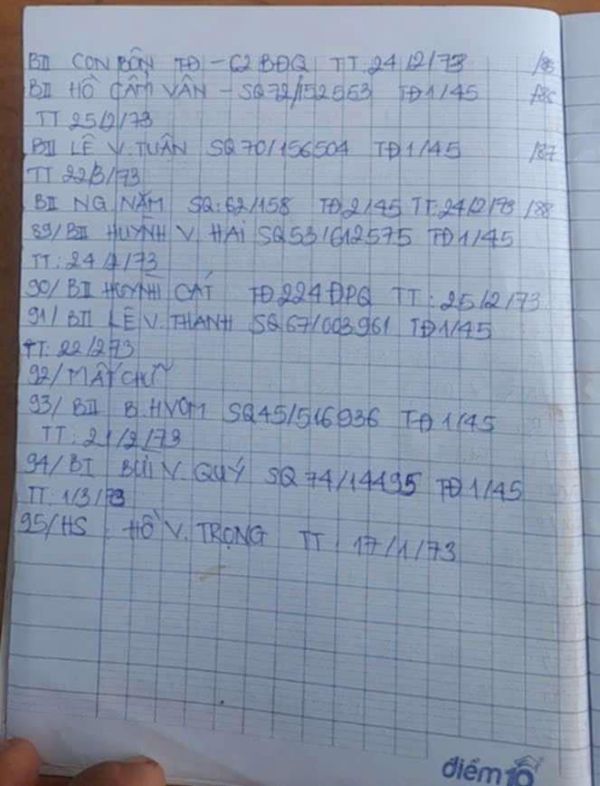 BII CON BÔN TĐ - 62 BĐQ TT. 24/2/73 /85
BII HỒ CẨM VÂN - SQ 72/152553 TĐ 1/45 /86
TT 25/2/73
BII LÊ V. TUÂN SQ 70/156504 TĐ 1/45 /87
TT 22/3/73
BII NG NĂM SQ: 62/158 TĐ 2/45 TT: 24/2/73 /88
89/ BII HUỲNH V. HAI SQ 53/612575 TĐ 1/45
TT: 24/2/73
90/ BII HUỲNH CÁT TĐ 224 ĐPQ TT: 25/2/73
91/ BII LÊ V. THANH SQ 67/003961 TĐ 1/45
TT: 22/2/73
92/ MẤT CHỮ
93/ BII B. HVOM SQ 45/516936 TĐ 1/45
TT: 21/2/73
94/ BI BÙI V. QUÝ SQ 74/14495 TĐ 1/45
TT. 1/3/73
95/HS : HỒ V. TRỌNG TT: 17/1/73
điểm 10